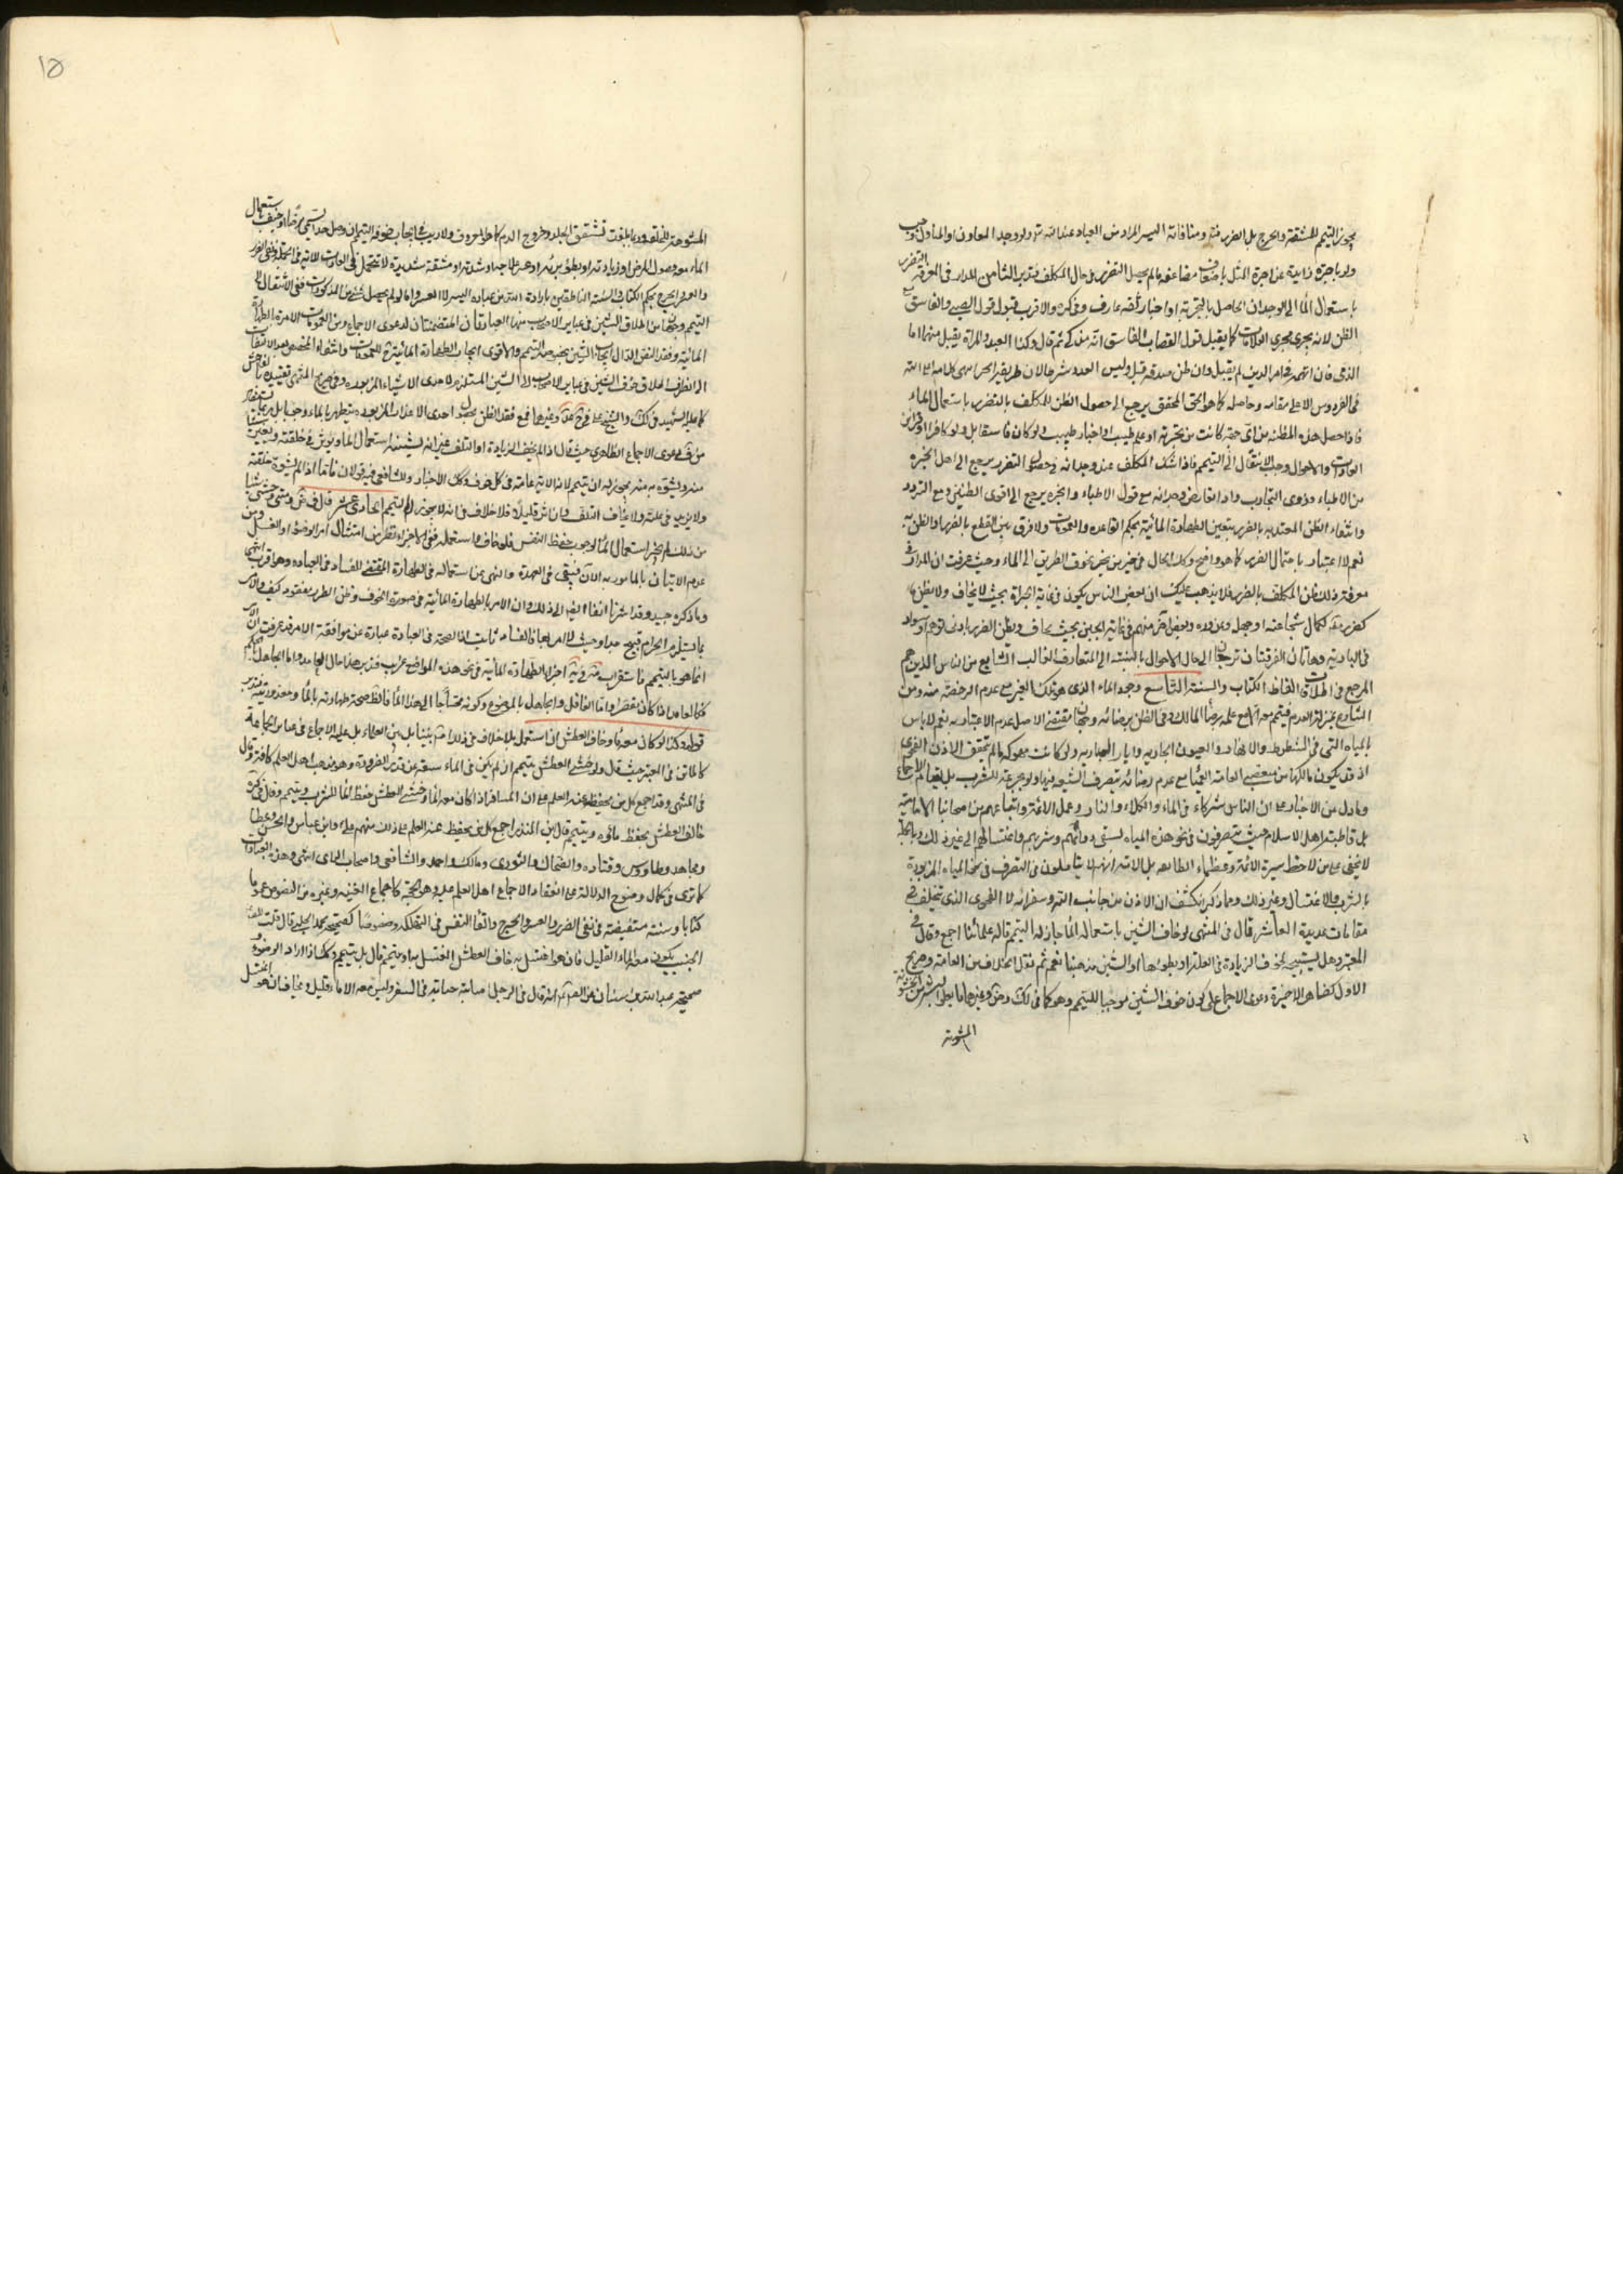 يجوز التيمم للمشقة والحرج بل الضرر ومنافاته اليسر المراد من العباد عند الله ولو وجد المعاون او المناول وجب
ولو باجرة زايدة عن اجرة المثل باضعاف مضاعفه ما لم يصل التضرر بحال المكلف الثامن المدار في المعرفة التضرر
باستعمال الماء الوجدان الحاصل بالتجربة او اخبار ثقة عارف وفي كره والاقرب قبول قول الصبي والفاسق مع
الظن لانه يجرى مجرى العلامات كما يقبل قول القصاب الفاسق انه مذكى ثم قال وكذا العبد والمراة يقبل منهما اما
الذمي فان اتهمه في امر الدين لم يقبل وان ظن صدقه قبل وليس العدد شرطا لان طريقه الخبر انتهى كلامه اعلى الله
في الفردوس الاعلى مقامه وحاصله كما هو الحق المحقق يرجع الى حصول الظن للمكلف بالتضرر باستعمال الماء
فاذا حصل هذه المظنه من اى جهة كانت من تجربة او علم طبيب او اخبار طبيب ولو كان فاسقا بل ولو كافرا او قراين
العادات والاحوال وجب الانتقال الى التيمم فاذا شك المكلف عند وجدانه في حصول التضرر يرجع الى اهل الخبره
من الاطباء وذوى التجارب واذا تعارض وجدانه مع قول الاطباء والخبره يرجع الى اقوى الظنين ومع التردد
وانتفاء الظن المعتد به بالضرر يتعين الطهارة المائية بحكم القاعده والعمومات ولا فرق بين القطع بالضرر والظن به
نعم لا اعتبار باحتمال الضرر كما هو واضح وكك الحال في خبر من يخبر بخوف الطريق الى الماء وحيث عرفت ان المدار في
معرفة ذلك ظن المكلف بالضرر فلا يذهب عليك ان بعض الناس يكون في غاية الجراة بحيث لا يخاف ولا يظن
لكمال شجاعته او جهل وبعض آخر منهم في غاية الجبن بحيث يخاف ويظن الضرر بادنى توهم او سواد
في البادية وهاتان الفرقتان ترجعان الى حال الاحوال بالنسبة الى المتعارف الغالب الشايع من الناس الذين هم
المرجع في اطلاقات الفاظ الكتاب والسنة التاسع وجد الماء الذى هو ملك الغير مع عدم الرخصة منه ومن
الشارع بمنزلة العدم فيتيمم معه نعم مع علمه برضا المالك وفي الظن برضائه وجهان مقتضى الاصل عدم الاعتبار به نعم لا باس
بالمياه التى في الشطوط والانهار والعيون الجاريه وابار الجاريه ولو كانت مملوكه ما لم يتحقق الاذن الفحوى
اذ قد يكون مالكها من متعصبى العامة العمياء مع عدم رضائه بتصرف الشيعه فيها ولو جرعة للشرب بل لقيام الاجماع
وما دل من الاخبار على ان الناس شركاء في الماء والكلاء والنار وعمل الائمة واتباعهم من اصحابنا الامامية
بل قاطبة اهل الاسلام حيث يتصرفون في نحو هذه المياه بسقى دوابهم وشربهم واغتسالهم الى غير ذلك وبالجملة
لا يخفى على من لاحظ سيرة الائمة وعظماء الطائفه بل الامة انهم لا يتاملون في التصرف في نحو المياه المزبورة
بالشرب والاغتسال وغير ذلك ومما ذكر ينكشف ان الاذن من جانب الله وسفرائه لا الفحوى الذى تتخلف في
مقامات عديدة العاشر قال في المنتهى لو خاف الشين باستعماله الماء جاز له التيمم قاله علمائنا اجمع وقال في
المعتبر وهل يستبيح بخوف الزيادة في العلة او بطوءها او الشين مذهبنا نعم ثم نقل الخلاف من العامة وصريح
الاول كظاهر الاخيرة دعوى الاجماع على كون خوف الشين موجبا للتيمم وهو كما في لك وض وغيرهما ما يعلو البشرة من الخشونة
المشوهة
المشوهة للخلقة وربما بلغت تشقق الجلد وخروج الدم كما هو المعروف ولا ريب في ايجاب خوفه التيمم ان وصل حدا يسمى مرضا او خيف باستعمال
الماء معه حصول المرض او زيادته او بطؤ برئه او عسر علاجه او شدته او مشقة شديدة لا تتحمل في العادات
والعسر والحرج بحكم الكتاب والسنة الناطقين بارادة الله من عباده اليسر لا العسر واما لو لم يحصل شئ من المذكورات ففي الانتقال الى
التيمم وجهان من اطلاق الشين في عباير الاصحاب منها العبارتان المتضمنتان لدعوى الاجماع ومن العمومات الامرة بالطهارة
المائية وفقد النص الدال لايجاب الشين بخصوصه التيمم والاقوى ايجاب الطهارة المائية للعمومات وانتفاء المخصص بعد الالتفات
الى انصراف اطلاق خوف الشين في عباير الاصحاب الى الشين المستلزم لاحدى الاشياء المزبوره وفي صريح المنتهى تقييده بالفاحش
كما عليه الشهيد في لك والشيخ على في ح عد وغيرهما فمع فقد الظن بحصول احدى الاعذار المزبوره يتطهر بالماء وجوبا بل
من ف دعوى الاجماع الظاهرى حيث قال اذا لم يخف الزيادة او التلف غير انه يشينه استعمال الماء ويؤثر في خلقته ويغير شيئا
منه ويشوه به منه يجوز له ان يتيمم لان الاية عامة في كل خوف وكك الاخبار وللشافعي فيه قولان فاما اذا لم يشوه خلقته
ولا يزيد في علته ولا يخاف التلف وان اثر قليلا فلا خلاف في انه لا يجوز له التيمم الحادي عشر قال في ض ومتى خشى شيئا
من ذلك لم يجز استعمال الماء لوجوب حفظ النفس فلو خاف واستعمله ففي الاجزاء نظر من امتثال امر الوضوء او الغسل ومن
عدم الاتيان بالمامور به الان فيبقى في العهدة والنهى عن استعماله في الطهارة المقتضى للفساد في العباده وهو اقرب انتهى
وما ذكره جيد وقد اشرنا انفا اليه الى ذلك وان الامر بالطهارة المائية في صورة الخوف وظن الضرر مفقود كيف والامر
بما يستلزم الحرام قبيح جدا وحيث لا امر بها فالفساد ثابت اذ الصحة في العبادة عبارة عن موافقة الامر وقد عرفت ان الامر
انما هو بالتيمم فاستقراب اجزاء الطهارة المائية في نحو هذه المواضع غريب فتدبر هذا حال العامد واما الجاهل بالحكم
فكالعامد اذا كان مقصرا واما الغافل والجاهل بالموضوع وكونه محتاجا الى هذا الماء فالظ صحة طهارته بالماء ومعذوريته فتدبر
قوله وكذا لو كان معه ماء وخاف العطش ان استعمل بلا خلاف في ذلك بيننا بل بين العلماء بل عليه الاجماع في عباير الجماعة
كالماتن في المعتبر حيث قال ولو خشى العطش يتيمم ان لم يكن في الماء سعة عن قدر الضرورة وهو مذهب اهل العلم كافة وقال
في المنتهى وقد اجمع كل من يحفظ عنه العلم على ان المسافر اذا كان معه الماء وخشى العطش حفظ الماء للشرب وتيمم وقال في كره
خائف العطش يحفظ مائه ويتيمم قال ابن المنذر اجمع كل من يحفظ عنه العلم على ذلك منهم على وابن عباس والحسن وعطا
ومجاهد وطاووس وقتاده والضحاك والثورى ومالك واحمد والشافعى واصحاب الراى انتهى وهذه العبارات
كما ترى في كمال وضوح الدلالة على انعقاد الاجماع اهل العلم عليه وهو الحجة كاجماع الغنيه وغيره من النصوص عموما
كتابا وسنة مستفيضة في نفي الضرر والعسر والحرج والقاء النفس في التهلكه وخصوصا كصحيحة الحلبي قال قلت
الجنب يكون معه الماء القليل فان هو اغتسل به خاف العطش ايغتسل به او يتيمم قال بل يتيمم وكك اذا اراد الوضوء
صحيحة عبد الله بن سنان عن الصادق انه قال في الرجل اصابته جنابة في السفر وليس معه الا ماء قليل ويخاف ان هو اغتسل